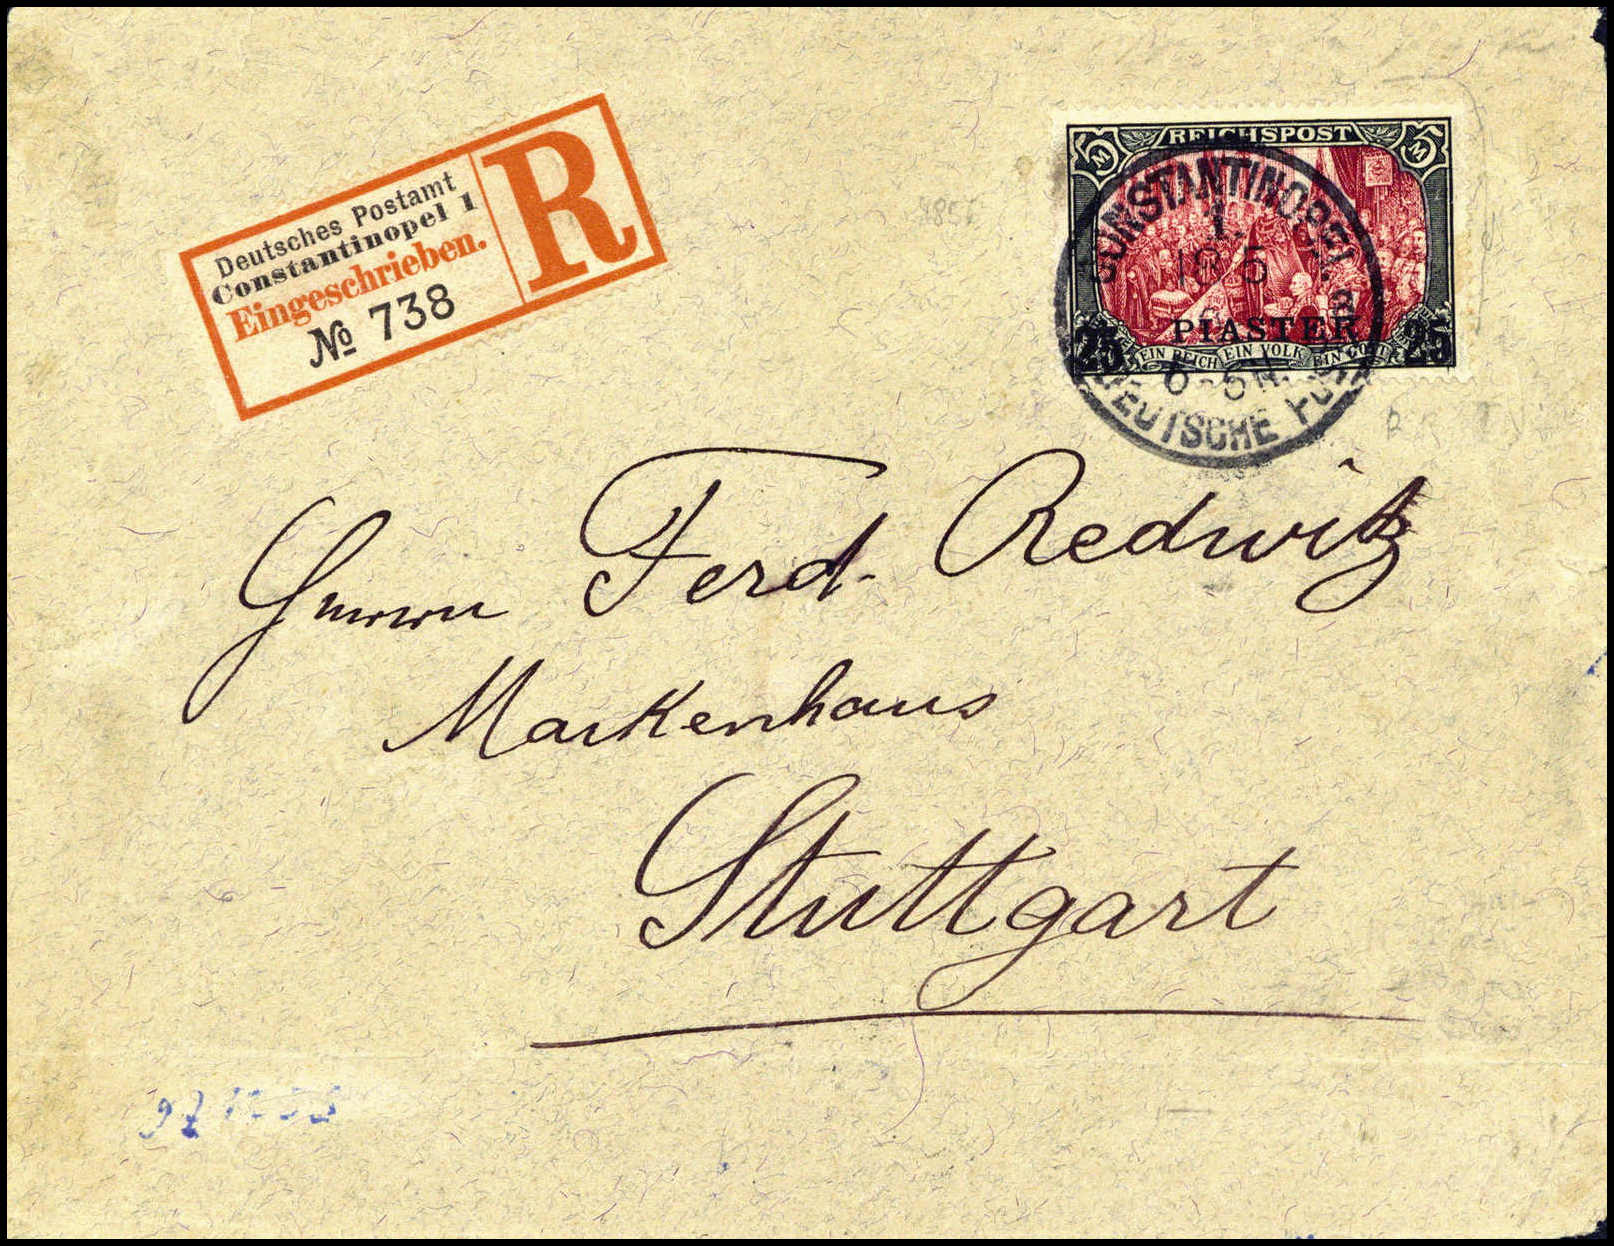 Deutsches Postamt
Constantinopel 1
Eingeschrieben.
№ 738
R
5 M REICHSPOST 5 M
CONSTANTINOPEL
1
18 5
25 PIASTER 25
EIN REICH EIN VOLK EIN GOTT
6-8 N.
DEUTSCHE POST
Herrn Ferd. Redwitz
Markenhaus
Stuttgart